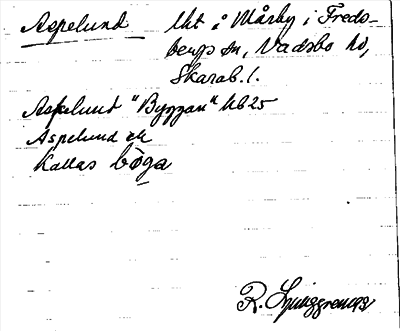 Aspelund lht å Mårby i Freds-
bergs sn, Vadsbo hd,
Skarab. l.
Aspelund "Byggan" Hb 25
Aspelund ek
Kallas böga
R. Ljunggren